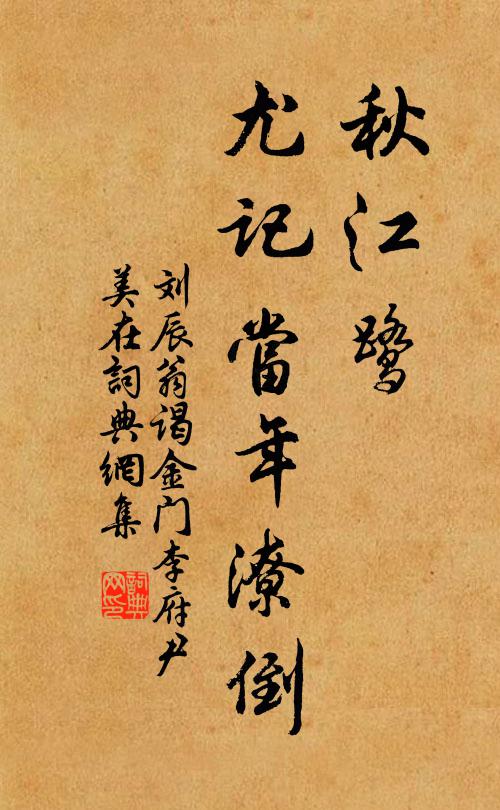 秋江鹭
尤记當年潦倒
刘辰翁谒金门李府尹
美在詞典網集
詞典网印